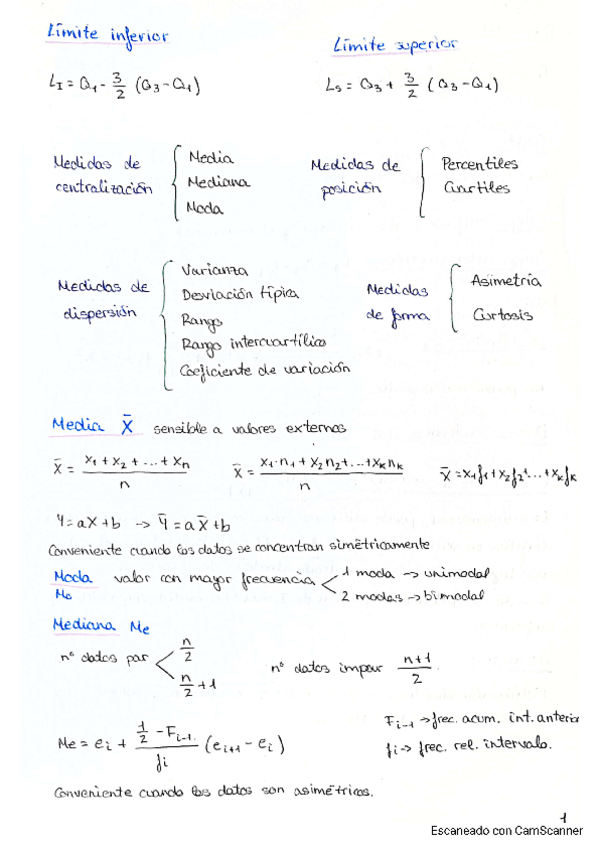 Límite inferior
Límite superior
L_I = Q₁ - 3/2 (Q₃ - Q₁)
L_s = Q₃ + 3/2 (Q₃ - Q₁)
Medidas de centralización { Media
Mediana
Moda
Medidas de posición { Percentiles
Cuartiles
Medidas de dispersión { Varianza
Desviación típica
Rango
Rango intercuartílico
Coeficiente de variación
Medidas de forma { Asimetría
Curtosis
Media X̄ sensible a valores externos
X̄ = (x₁ + x₂ + ... + xₙ)/n
X̄ = (x₁·n₁ + x₂n₂ + ... + x_k n_k)/n
X̄ = x₁f₁ + x₂f₂ + ... + x_k f_k
Y = aX + b → Ȳ = aX̄ + b
Conveniente cuando los datos se concentran simétricamente
Moda valor con mayor frecuencia < 1 moda → unimodal
Mo 2 modas → bimodal
Mediana Me
nº datos par < n/2
n/2 + 1
nº datos impar (n+1)/2
Me = e_i + (1/2 - F_{i-1})/f_i (e_{i+1} - e_i)
F_{i-1} → frec. acum. int. anterior
f_i → frec. rel. intervalo.
Conveniente cuando los datos son asimétricos.
1
Escaneado con CamScanner